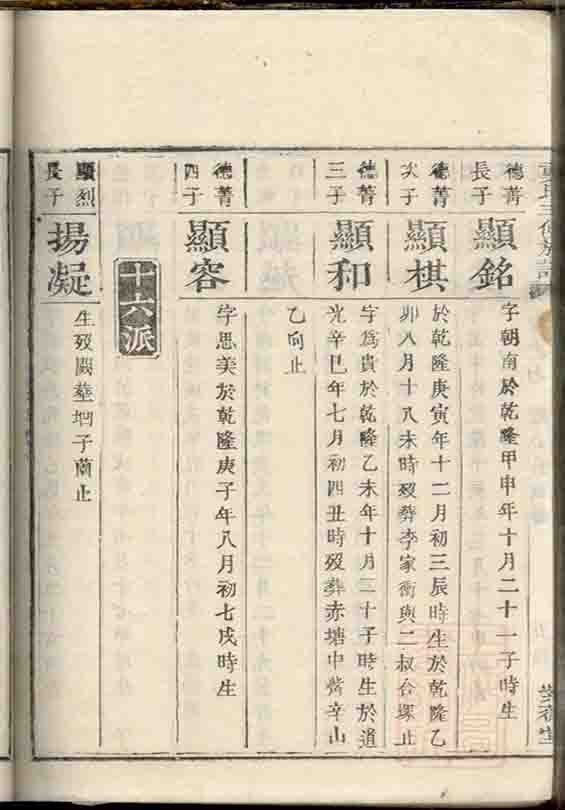 德菁
長子
顯銘
字朝南於乾隆甲申年十月二十一子時生
德菁
次子
顯棋
於乾隆庚寅年十二月初三辰時生於乾隆乙
卯八月十八未時歿葬李家衝與二叔合塚止
德菁
三子
顯和
字爲貴於乾隆乙未年十月二十子時生於道
光辛巳年七月初四丑時歿葬赤塘中嘴辛山
乙向止
德菁
四子
顯容
字思美於乾隆庚子年八月初七戌時生
十六派
顯烈
長子
揚凝
生歿闕塟坰子蘭止